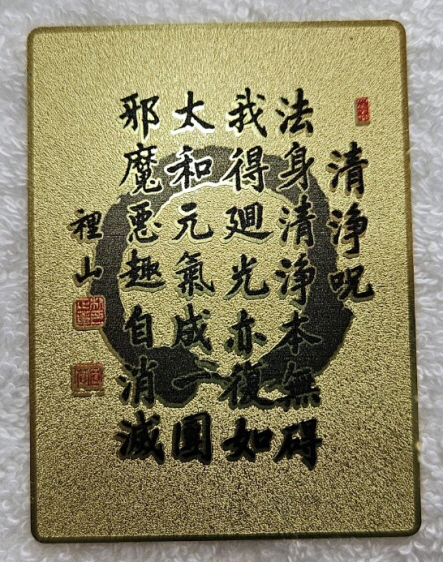 清淨呪
法身清淨本無碍
我得廻光亦復如
太和元氣成一團
邪魔惡趣自消滅
裡山